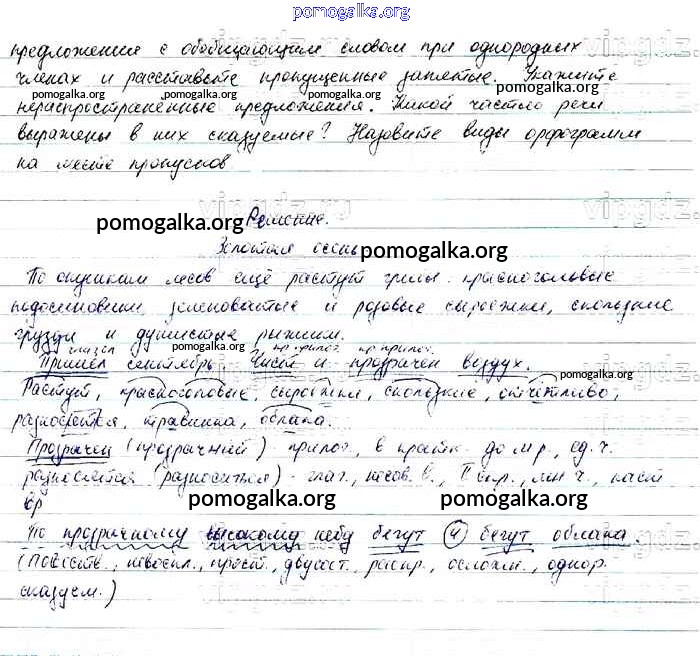 pomogalka.org
предложения с обобщающим словом при однородных
членах и расставьте пропущенные запятые. Укажите
pomogalka.org pomogalka.org pomogalka.org
нераспространённые предложения. Какой частью речи
выражены в них сказуемые? Назовите виды орфограмм
pomogalka.org
на месте пропусков
vipgdz.ru
Решение.
pomogalka.org
Золотая осень
pomogalka.org
По опушкам лесов ещё растут грибы: красноголовые
подосиновики, зеленоватые и розовые сыроежки, скользкие
грузди и душистые рыжики.
глагол кр. прилаг. кр. прилаг.
Пришёл сентябрь. Чист и прозрачен воздух.
pomogalka.org pomogalka.org
Растут, красноголовые, сыроежки, скользкие, отчётливо,
pomogalka.org
разносятся, травинка, облака.
Прозрачен (прозрачный) - прилаг., в кратк.
разносятся (разноситься) - глаг., несов. в., мн. ч., наст.
вр
pomogalka.org pomogalka.org
По прозрачному высокому небу бегут и бегут облака.
pomogalka.org pomogalka.org
(Повеств., невоскл., прост., двусост., распр., осложн., однор.
pomogalka.org
сказуем.)